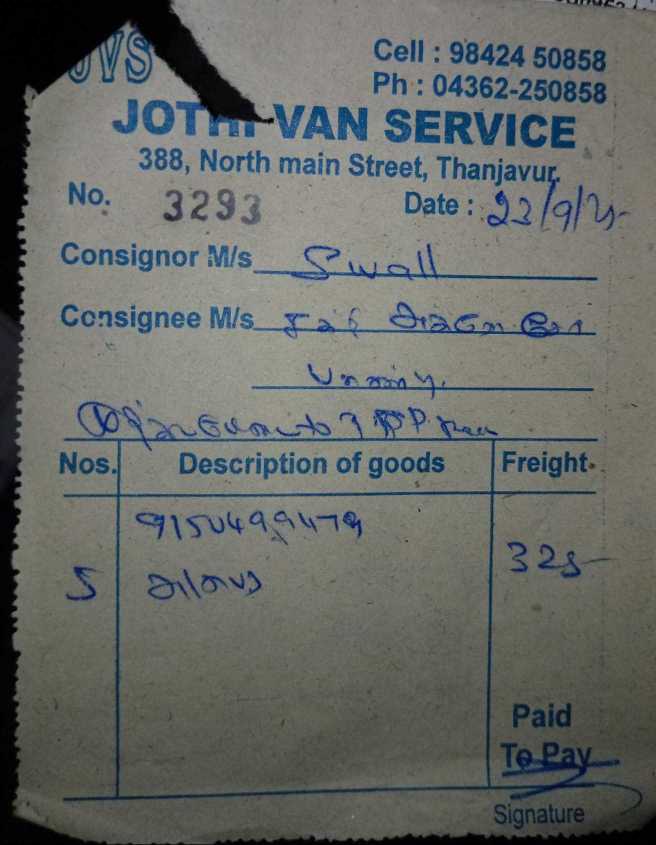 JVS
Cell : 98424 50858
Ph : 04362-250858
JOTHI VAN SERVICE
388, North main Street, Thanjavur.
No. 3293 Date : 23/9/25
Consignor M/s Swall
Consignee M/s
Nos. Description of goods Freight
9150499479
5
325
Paid
To Pay
Signature